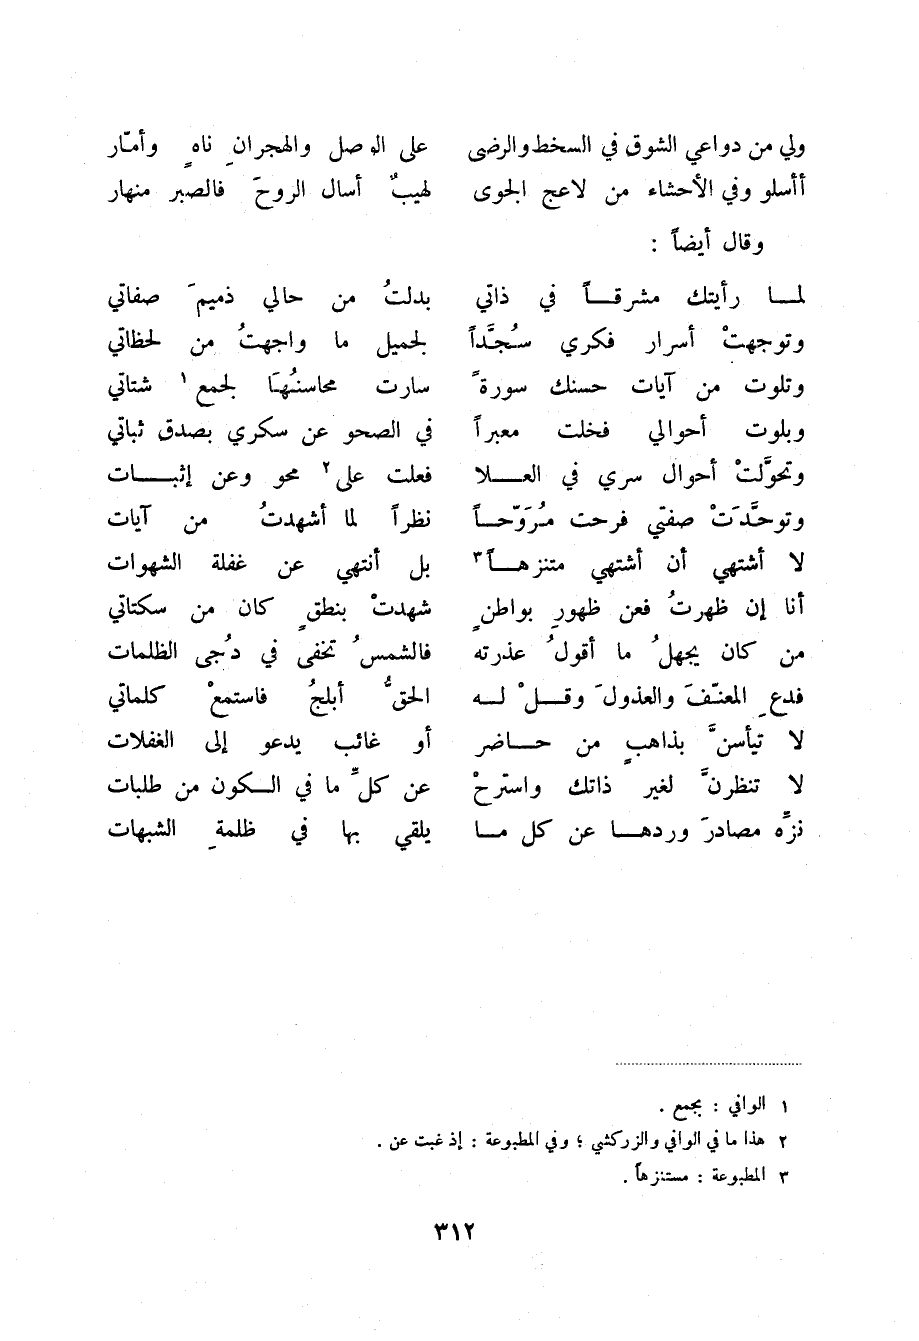 ولي من دواعي الشوق في السخط والرضى على الوصل والهجرانِ ناهٍ وأمّار
أأسلو وفي الأحشاء من لاعج الجوى لهيبٌ أسال الروحَ فالصبر منهار
وقال أيضاً :
لمـا رأيتك مشرقـاً في ذاتي بدلتُ من حالي ذميمَ صفاتي
وتوجهتْ أسرار فكري سُجَّداً لجميل ما واجهتُ من لحظاتي
وتلوت من آيات حسنك سورةً سارت محاسنُهَا لجمع ١ شتاتي
وبلوت أحوالي فخلت معبراً في الصحو عن سكري بصدق ثباتي
وتحوَّلتْ أحوال سري في العـلا فعلت على ٢ محو وعن إثبـات
وتوحَّدَتْ صفتي فرحت مُرَوّحـاً نظراً لما أشهدتُ من آيات
لا أشتهي أن أشتهي متنزهـاً ٣ بل أنتهي عن غفلة الشهوات
أنا إن ظهرتُ فعن ظهورِ بواطنٍ شهدتْ بنطقٍ كان من سكتاتي
من كان يجهلُ ما أقولُ عذرته فالشمسُ تخفى في دُجى الظلمات
فدعِ المعنّفَ والعذولَ وقـلْ لـه الحقُّ أبلجُ فاستمعْ كلماتي
لا تيأسنَّ بذاهبٍ من حـاضر أو غائب يدعو إلى الغفلات
لا تنظرنَّ لغير ذاتك واسترحْ عن كلِّ ما في الـكون من طلبات
نزِّه مصادرَ وردهـا عن كل مـا يلقي بها في ظلمةِ الشبهات
١ الوافي : بجمع .
٢ هذا ما في الوافي والزركشي ؛ وفي المطبوعة : إذ غبت عن .
٣ المطبوعة : مستنزهاً .
٣١٢